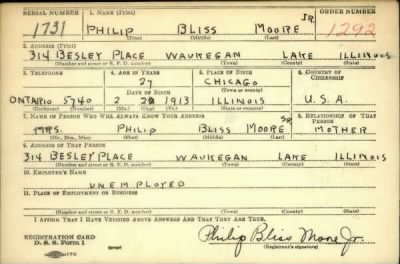 SERIAL NUMBER 1. NAME (Print) ORDER NUMBER
1731 PHILIP BLISS MOORE JR. 1292
(First) (Middle) (Last)
2. ADDRESS (Print)
314 BESLEY PLACE WAUKEGAN LAKE ILLINOIS
(Number and street or R. F. D. number) (Town) (County) (State)
3. TELEPHONE 4. AGE IN YEARS 5. PLACE OF BIRTH 6. COUNTRY OF CITIZENSHIP
27 CHICAGO
DATE OF BIRTH (Town or county)
ONTARIO 5740 2 2 1913 ILLINOIS U.S.A.
(Exchange) (Number) (Mo.) (Day) (Yr.) (State or country)
7. NAME OF PERSON WHO WILL ALWAYS KNOW YOUR ADDRESS 8. RELATIONSHIP OF THAT PERSON
MRS. PHILIP BLISS MOORE SR. MOTHER
(Mr., Mrs., Miss) (First) (Middle) (Last)
9. ADDRESS OF THAT PERSON
314 BESLEY PLACE WAUKEGAN LAKE ILLINOIS
(Number and street or R. F. D. number) (Town) (County) (State)
10. EMPLOYER'S NAME
UNEMPLOYED
11. PLACE OF EMPLOYMENT OR BUSINESS
(Number and street or R. F. D. number) (Town) (County) (State)
I AFFIRM THAT I HAVE VERIFIED ABOVE ANSWERS AND THAT THEY ARE TRUE.
REGISTRATION CARD
D. S. S. Form 1 Philip Bliss Moore Jr.
(Registrant's signature)